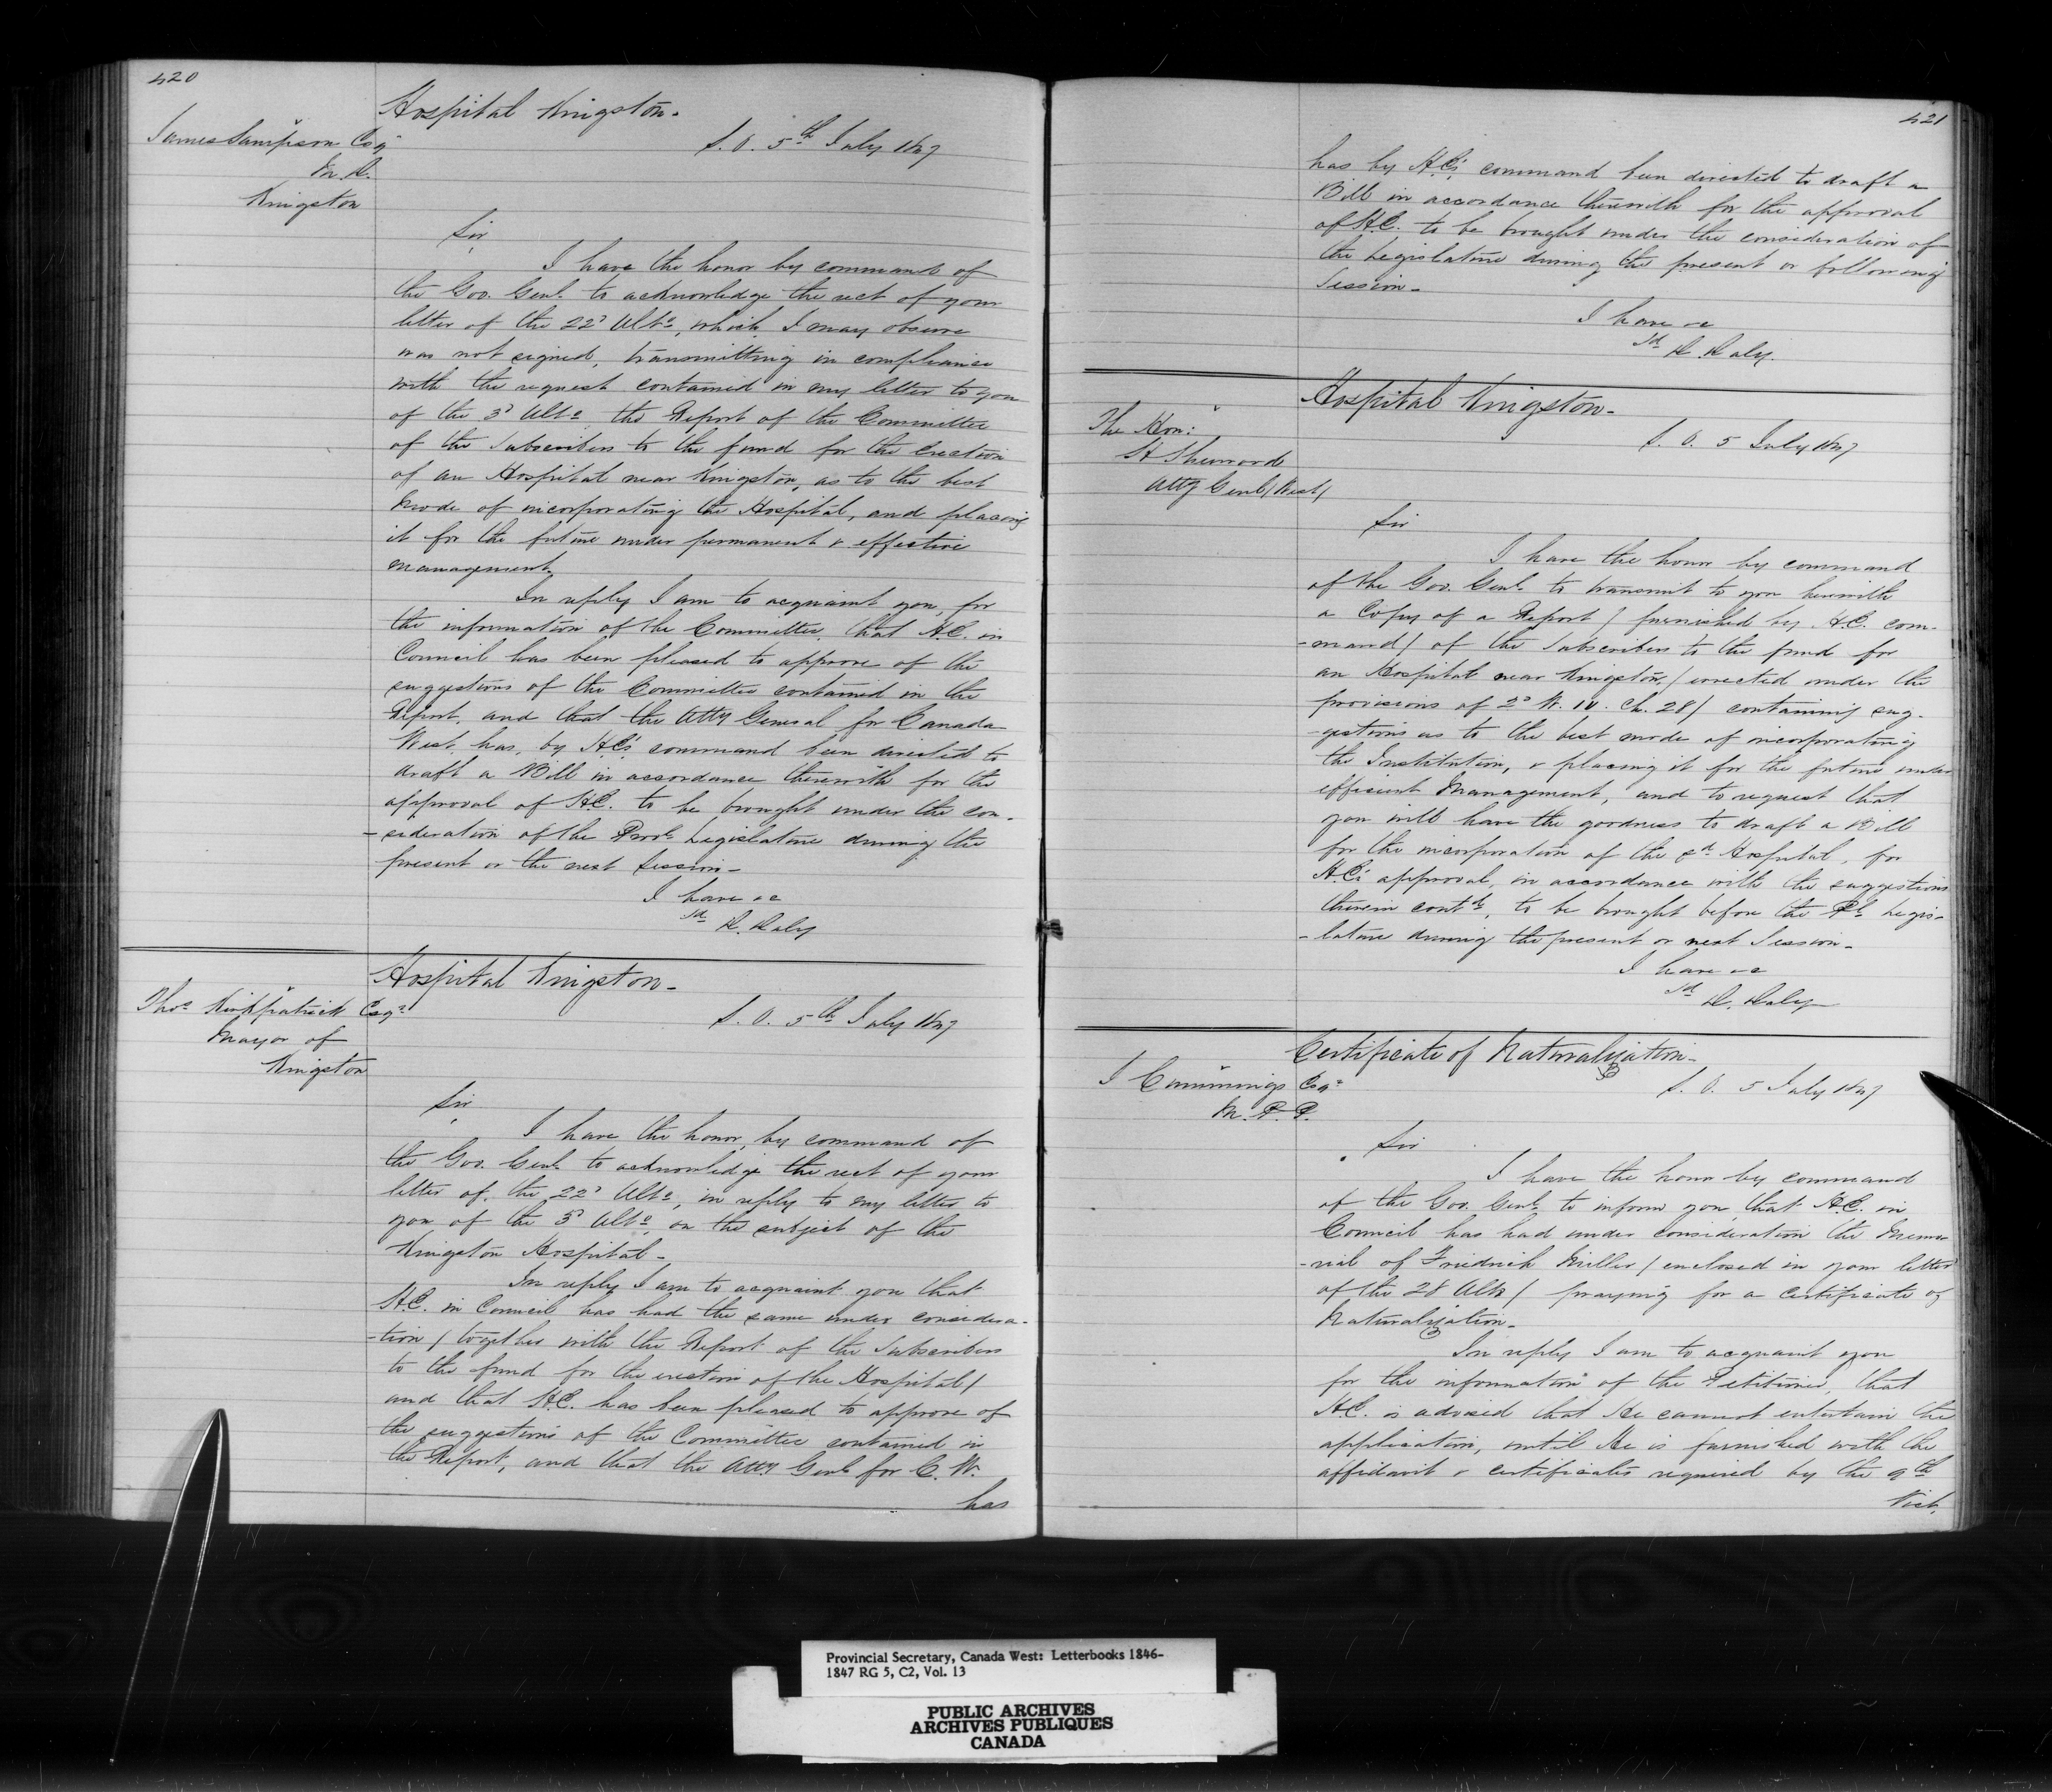 420
Hospital Kingston.
James Sampson Esqr
S. O. 5th July 1847
M. D.
Kingston
Sir,
I have the honor by command of
the Gov. Genl. to acknowledge the rect of your
letter of the 22d Ulto, which I may observe
was not signed, transmitting in compliance
with the request contained in my letter to you
of the 3d Ulto the Report of the Committee
of the Subscribers to the fund for the erection
of an Hospital near Kingston, as to the best
mode of incorporating the Hospital, and placing
it for the future under permanent & effective
management.
In reply I am to acquaint you, for
the information of the Committee, that H.E. in
Council has been pleased to approve of the
suggestions of the Committee contained in the
Report, and that the Atty General for Canada
West, has, by H.E's command been directed to
draft a Bill in accordance therewith for the
approval of H.E. to be brought under the con-
-sideration of the Provl Legislature during the
present or the next Session -
I have &c
sd D. Daly
Hospital Kingston -
Thos Kirkpatrick Esqr
S. O. 5th July 1847
Mayor of
Kingston
Sir,
I have the honor, by command of
the Gov. Genl. to acknowledge the rect of your
letter of the 22d Ulto, in reply to my letter to
you of the 3d Ulto, on the subject of the
Kingston Hospital -
In reply I am to acquaint you that
H.E. in Council has had the same under considera-
-tion / together with the Report of the Subscribers
to the fund for the erection of the Hospital /
and that H.E. has been pleased to approve of
the suggestions of the Committee contained in
the Report, and that the Atty Genl for C. W.
has
421
has by H.E's command been directed to draft a
Bill in accordance therewith for the approval
of H.E. to be brought under the consideration of
the Legislature during the present or following
Session -
I have &c
sd D. Daly.
Hospital Kingston -
The Hon:
S. O. 5 July 1847
H Sherwood
Atty Genl / West /
Sir
I have the honor by command
of the Gov. Genl. to transmit to you herewith
a Copy of a Report / furnished by H.E. com-
-mand / of the Subscribers to the fund for
an Hospital near Kingston, / erected under the
provisions of 2d W. IV. Ch. 28 / containing sug-
-gestions as to the best mode of incorporating
the Institution, & placing it for the future under
efficient Management, and to request that
you will have the goodness to draft a Bill
for the incorporation of the sd Hospital, for
H.E's approval, in accordance with the suggestions
therein contd, to be brought before the Pl Legis-
-lature during the present or next Session -
I have &c
sd D. Daly
Certificate of Naturalization -
J Cummings Esqr
S. O. 5 July 1847
M. P. P.
Sir
I have the honor by command
of the Gov. Genl. to inform you, that H.E. in
Council has had under consideration the Memo-
-rial of Friedrich Miller / enclosed in your letter
of the 28 Ulto / praying for a certificate of
Naturalization -
In reply I am to acquaint you
for the information of the Petitioner, that
H.E. is advised that He cannot entertain the
application, until He is furnished with the
affidavit & certificates required by the 9th
Vict.
Provincial Secretary, Canada West: Letterbooks 1846-
1847 RG 5, C2, Vol. 13
PUBLIC ARCHIVES
ARCHIVES PUBLIQUES
CANADA